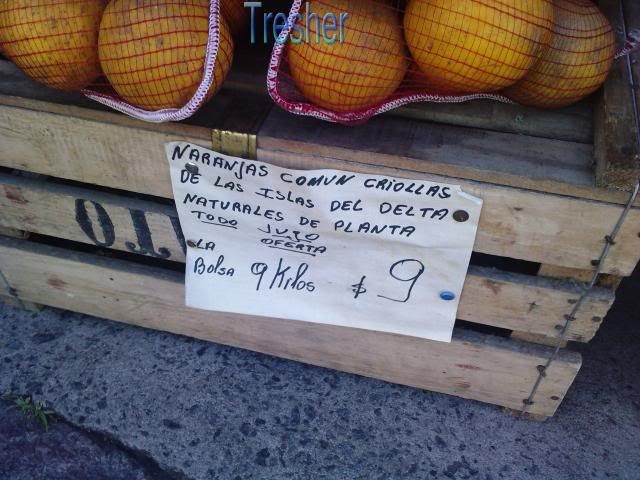 Tresher
NARANJAS COMUN CRIOLLAS
DE LAS ISLAS DEL DELTA
NATURALES DE PLANTA
TODO JUGO
LA OFERTA
Bolsa 9 Kilos $ 9
OTI